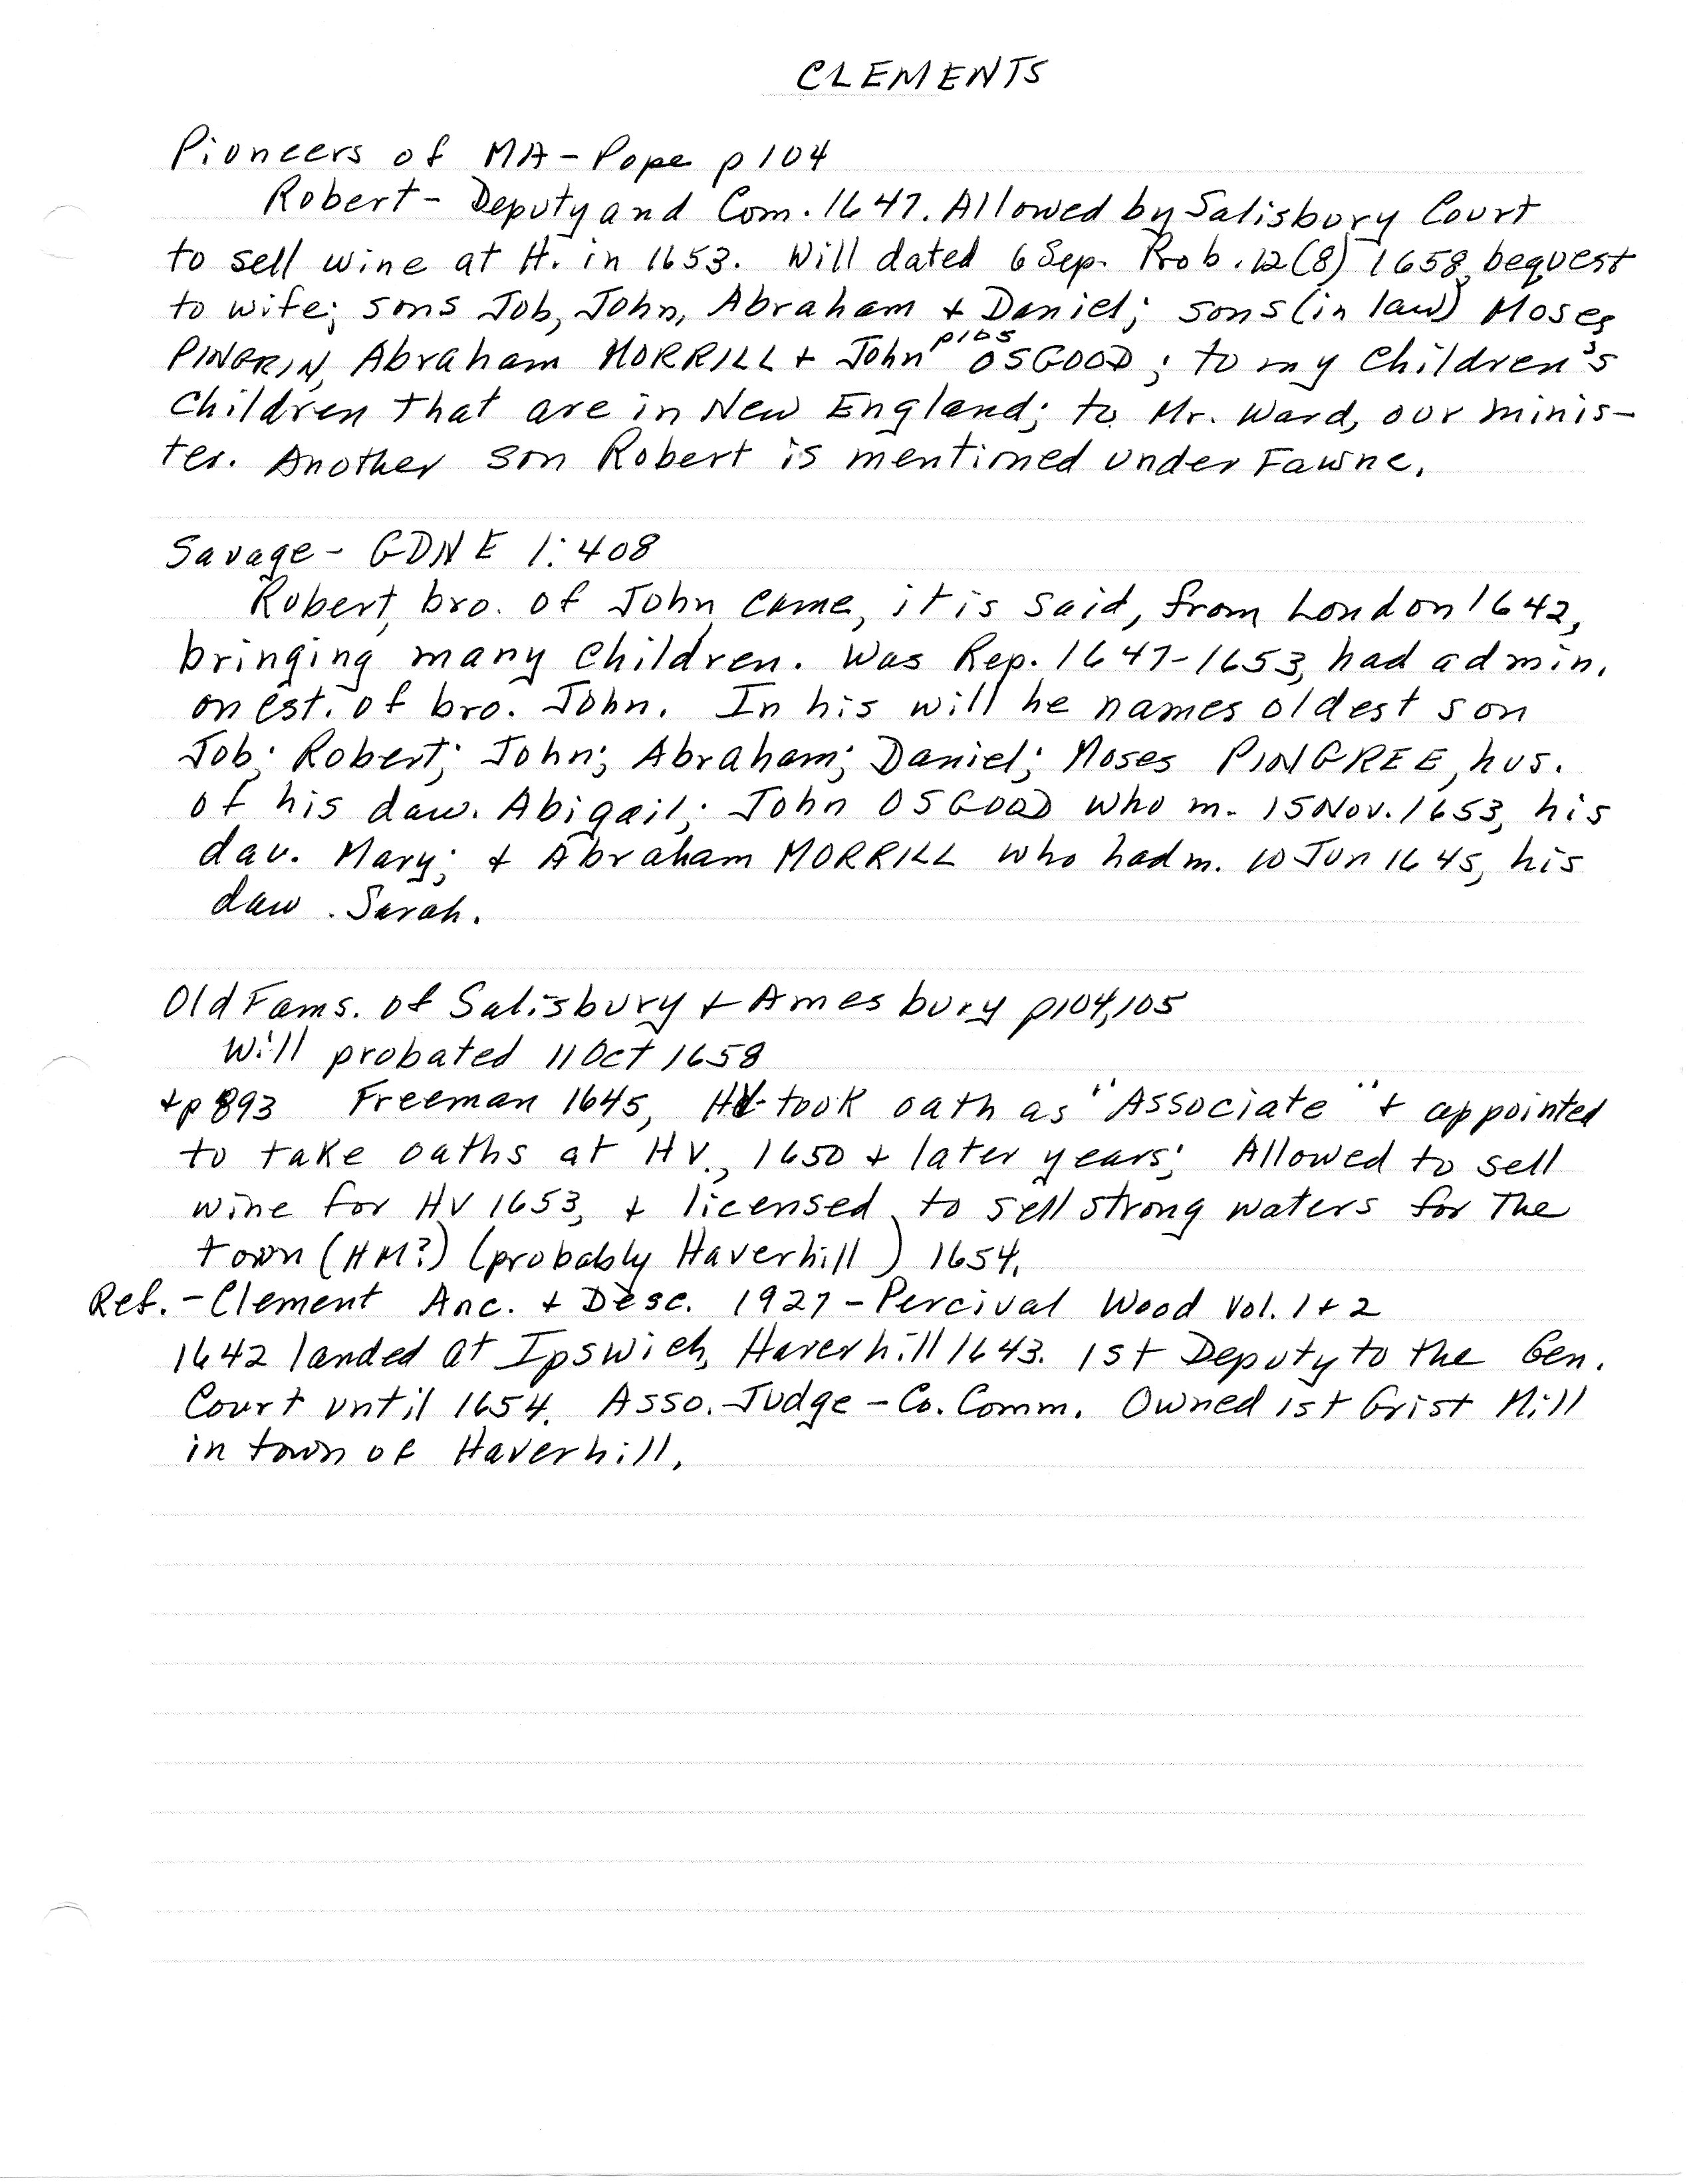 CLEMENTS
Pioneers of MA - Pope p 104
Robert - Deputy and Com. 1647. Allowed by Salisbury Court
to sell wine at H. in 1653. Will dated 6 Sep. Prob. 12 (8) 1658, bequest
to wife; sons Job, John, Abraham + Daniel; sons (in law) Moses
p105
PINGRIN, Abraham MORRILL + John OSGOOD; to my children's
children that are in New England; to Mr. Ward, our minis-
ter. Another son Robert is mentioned under Fawne.
Savage - GDNE 1:408
Robert, bro. of John, came, it is said, from London 1642,
bringing many children. Was Rep. 1647-1653, had admin.
on est. of bro. John. In his will he names oldest son
Job; Robert; John; Abraham; Daniel; Moses PINGREE, hus.
of his daw. Abigail; John OSGOOD who m. 15 Nov. 1653, his
dau. Mary; + Abraham MORRILL who had m. 10 Jun 1645, his
daw. Sarah.
Old Fams. of Salisbury + Amesbury p104,105
Will probated 11 Oct 1658
+p 893 Freeman 1645, HV took oath as "Associate" + appointed
to take oaths at HV., 1650 + later years; Allowed to sell
wine for HV 1653, + licensed to sell strong waters for the
town (HM?) (probably Haverhill) 1654.
Ref. - Clement Anc. + Desc. 1927 - Percival Wood Vol. 1 + 2
1642 landed at Ipswich, Haverhill 1643. 1st Deputy to the Gen.
Court until 1654. Asso. Judge - Co. Comm. Owned 1st Grist Mill
in town of Haverhill.